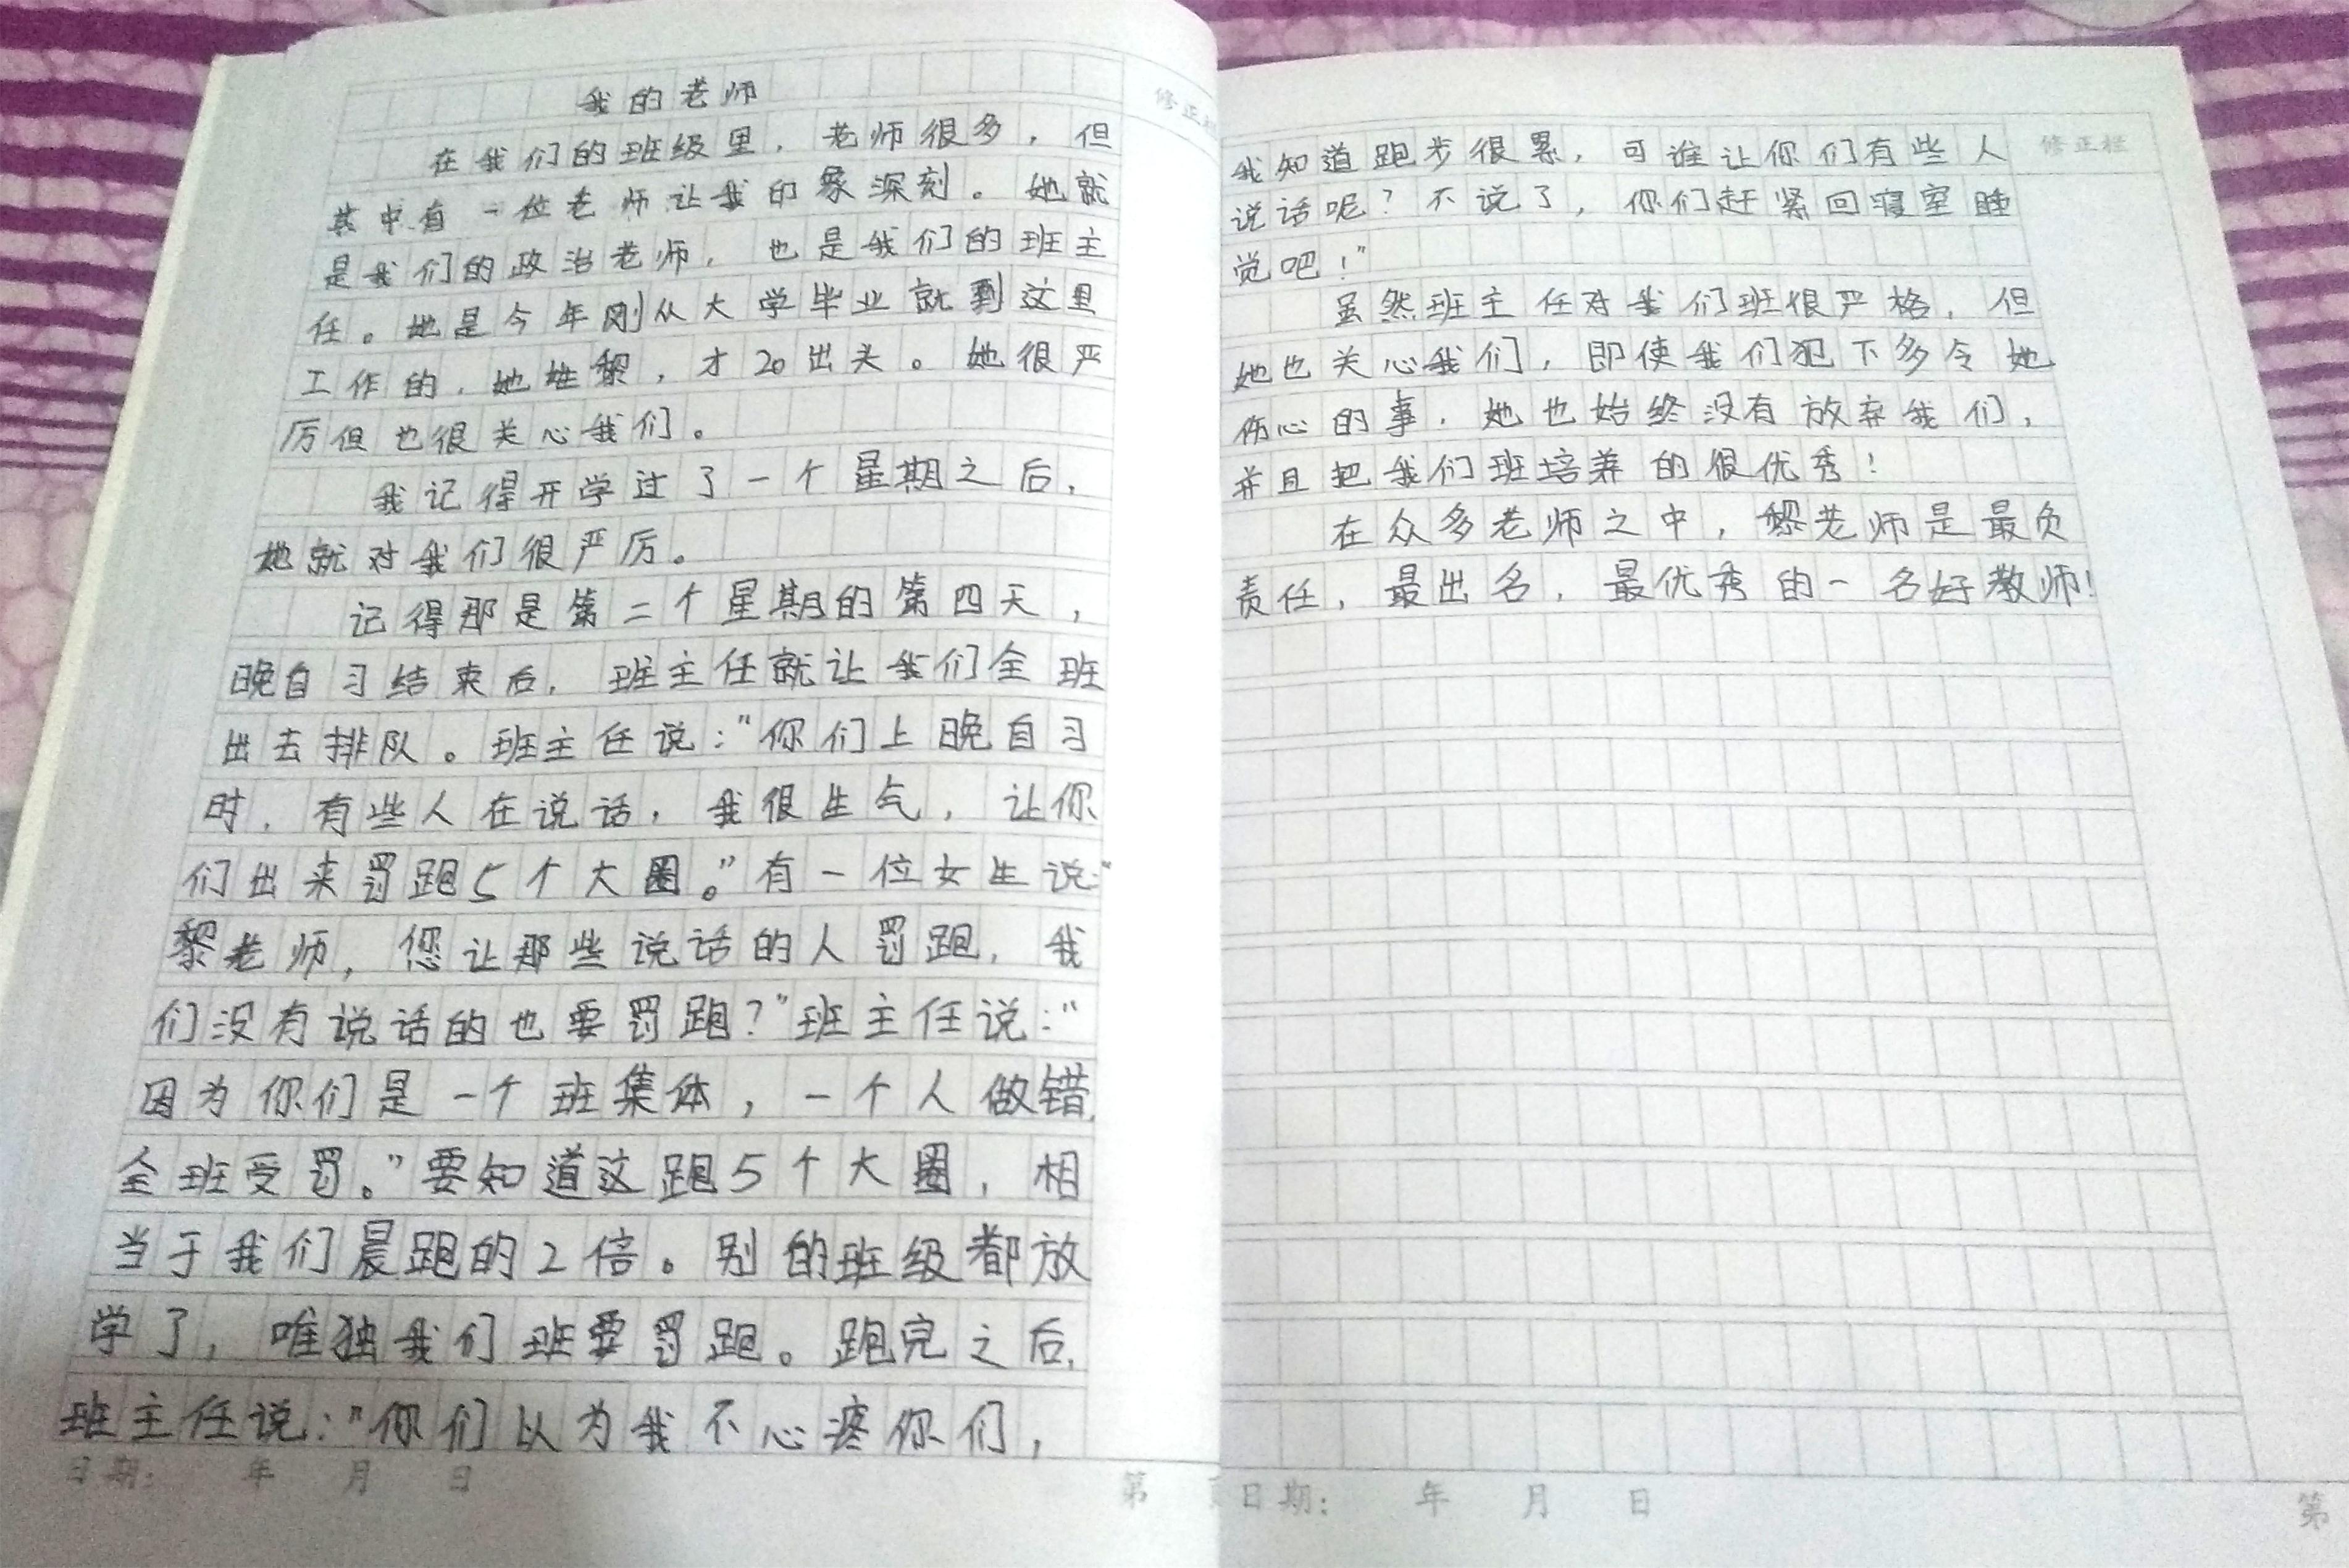 我的老师
在我们的班级里，老师很多，但
其中有一位老师让我印象深刻。她就
是我们的政治老师，也是我们的班主
任。她是今年刚从大学毕业就到这里
工作的，她姓黎，才20出头。她很严
厉但也很关心我们。
我记得开学过了一个星期之后，
她就对我们很严厉。
记得那是第二个星期的第四天，
晚自习结束后，班主任就让我们全班
出去排队。班主任说："你们上晚自习
时，有些人在说话，我很生气，让你
们出来罚跑5个大圈。"有一位女生说："
黎老师，您让那些说话的人罚跑，我
们没有说话的也要罚跑？"班主任说："
因为你们是一个班集体，一个人做错，
全班受罚。"要知道这跑5个大圈，相
当于我们晨跑的2倍。别的班级都放
学了，唯独我们班要罚跑。跑完之后，
班主任说："你们以为我不心疼你们，
日期： 年 月 日
第
修正栏
我知道跑步很累，可谁让你们有些人
说话呢？不说了，你们赶紧回寝室睡
觉吧！"
虽然班主任对我们班很严格，但
她也关心我们，即使我们犯下多令她
伤心的事，她也始终没有放弃我们，
并且把我们班培养的很优秀！
在众多老师之中，黎老师是最负
责任，最出名，最优秀的一名好教师！
修正栏
日期： 年 月 日
第